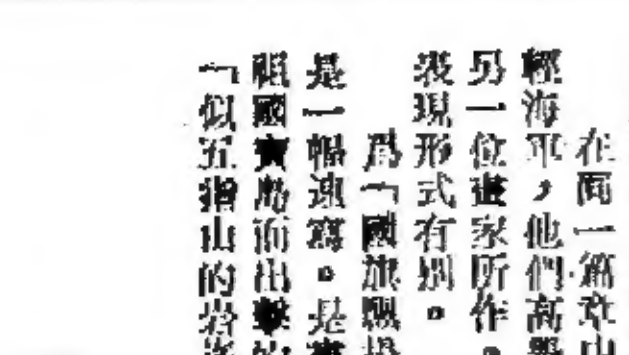 在面一篇章中
輕海軍，他們高舉
另一位畫家所作。
表現形式有別。
爲「國旗飄揚
是一幅速寫。是
祖國寶島而出擊的
「似五指山的岩